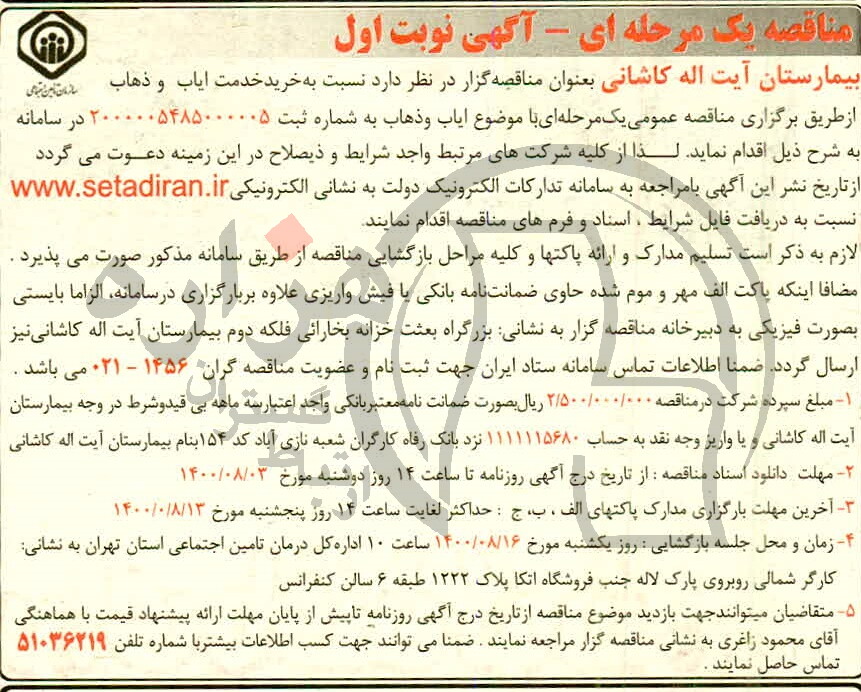 مناقصه یک مرحله ای - آگهی نوبت اول
سازمان تامین اجتماعی
بیمارستان آیت اله کاشانی بعنوان مناقصه‌گزار در نظر دارد نسبت به‌خریدخدمت ایاب و ذهاب
ازطریق برگزاری مناقصه عمومی‌یک‌مرحله‌ای‌با موضوع ایاب وذهاب به شماره ثبت ۲۰۰۰۰۰۵۴۸۵۰۰۰۰۰۵ در سامانه
به شرح ذیل اقدام نماید. لـــذا از کلیه شرکت های مرتبط واجد شرایط و ذیصلاح در این زمینه دعـــوت می گردد
ازتاریخ نشر این آگهی بامراجعه به سامانه تدارکات الکترونیک دولت به نشانی الکترونیکی www.setadiran.ir
نسبت به دریافت فایل شرایط ، اسناد و فرم های مناقصه اقدام نمایند.
لازم به ذکر است تسلیم مدارک و ارائه پاکتها و کلیه مراحل بازگشایی مناقصه از طریق سامانه مذکور صورت می پذیرد .
مضافا اینکه پاکت الف مهر و موم شده حاوی ضمانت‌نامه بانکی یا فیش واریزی علاوه بربارگزاری درسامانه، الزاما بایستی
بصورت فیزیکی به دبیرخانه مناقصه گزار به نشانی: بزرگراه بعثت خزانه بخارائی فلکه دوم بیمارستان آیت اله کاشانی‌نیز
ارسال گردد. ضمنا اطلاعات تماس سامانه ستاد ایران جهت ثبت نام و عضویت مناقصه گران ۱۴۵۶ - ۰۲۱ می باشد .
۱- مبلغ سپرده شرکت درمناقصه ۲/۵۰۰/۰۰۰/۰۰۰ ریال‌بصورت ضمانت نامه‌معتبربانکی واجد اعتبارسه ماهه بی قیدوشرط در وجه بیمارستان
آیت اله کاشانی و یا واریز وجه نقد به حساب ۱۱۱۱۱۱۵۶۸۰ نزد بانک رفاه کارگران شعبه نازی آباد کد ۱۵۴بنام بیمارستان آیت اله کاشانی
۲- مهلت دانلود اسناد مناقصه : از تاریخ درج آگهی روزنامه تا ساعت ۱۴ روز دوشنبه مورخ ۱۴۰۰/۰۸/۰۳
۳- آخرین مهلت بارگزاری مدارک پاکتهای الف ، ب، ج : حداکثر لغایت ساعت ۱۴ روز پنجشنبه مورخ ۱۴۰۰/۰/۸/۱۳
۴- زمان و محل جلسه بازگشایی : روز یکشنبه مورخ ۱۴۰۰/۰۸/۱۶ ساعت ۱۰ اداره‌کل درمان تامین اجتماعی استان تهران به نشانی:
کارگر شمالی روبروی پارک لاله جنب فروشگاه اتکا پلاک ۱۲۲۲ طبقه ۶ سالن کنفرانس
۵- متقاضیان میتوانندجهت بازدید موضوع مناقصه ازتاریخ درج آگهی روزنامه تاپیش از پایان مهلت ارائه پیشنهاد قیمت با هماهنگی
آقای محمود زاغری به نشانی مناقصه گزار مراجعه نمایند . ضمنا می توانند جهت کسب اطلاعات بیشتربا شماره تلفن ۵۱۰۳۶۲۱۹
تماس حاصل نمایند .